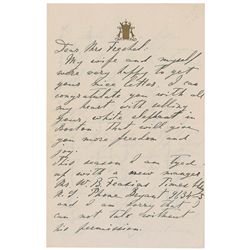 Dear Mrs
My wife and myself
were very happy to get
your nice letter. I
congratulate you with all
my heart with selling
your white elephant in
Boston. That will give
you more freedom and
joy.
This season I am tyed
up with a new manager
Mr. W. B. Times
N.Y. Phone Bryant
and I am sorry that I
can not do without
his permission.